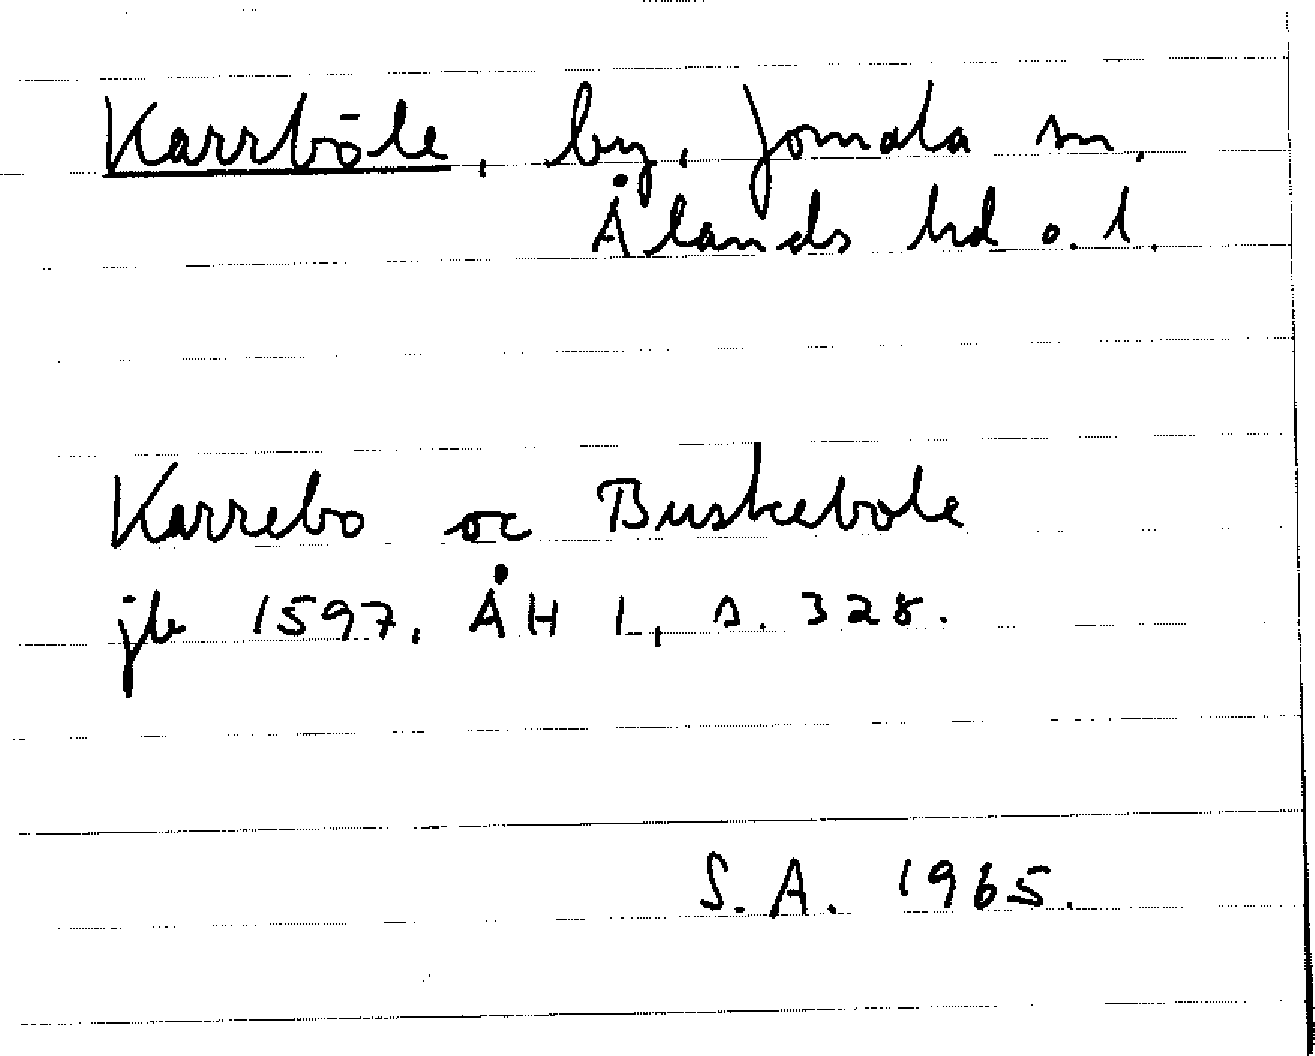 Karrböle, by, Jomala sn,
Ålands hd o. l.
Karrebo oc Buskebole
jb 1597, ÅH 1, s. 328.
S. A. 1965.